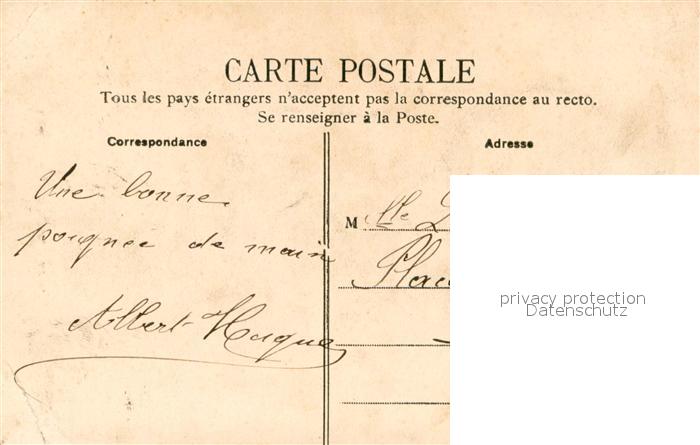 CARTE POSTALE
Tous les pays étrangers n'acceptent pas la correspondance au recto.
Se renseigner à la Poste.
Correspondance
Adresse
Une bonne
poignée de main
Albert
M lle
Place
privacy protection
Datenschutz